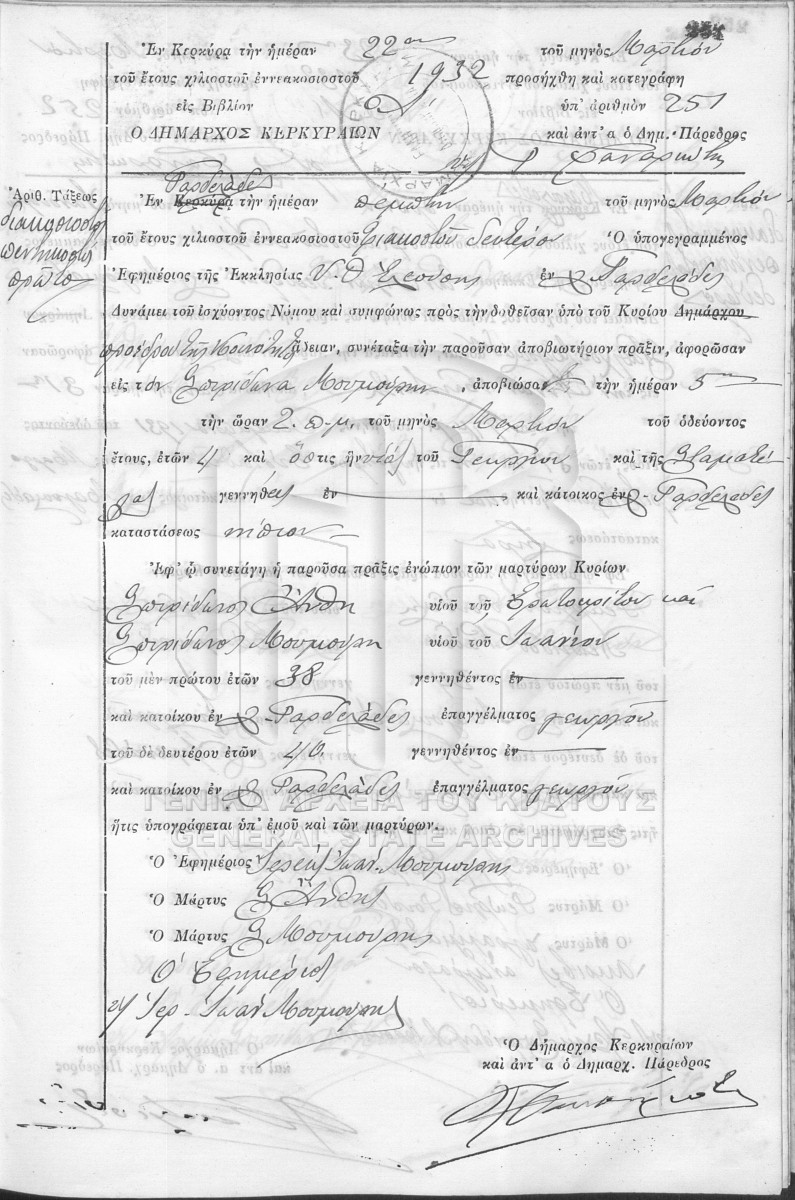 251
Ἐν Κερκύρᾳ τὴν ἡμέραν 22αν τοῦ μηνὸς Μαρτίου
τοῦ ἔτους χιλιοστοῦ ἐννεακοσιοστοῦ 1932 προσήχθη καὶ κατεγράφη
εἰς Βιβλίον α ὑπ' ἀριθμὸν 251
Ο ΔΗΜΑΡΧΟΣ ΚΕΡΚΥΡΑΙΩΝ καὶ ἀντ' α ὁ Δημ. Πάρεδρος
Ἀριθ. Τάξεως
διακόσια
πεντήκοντα
πρῶτον
Γαρδελάδες
Ἐν Κερκύρᾳ τὴν ἡμέραν πέμπτην τοῦ μηνὸς Μαρτίου
τοῦ ἔτους χιλιοστοῦ ἐννεακοσιοστοῦ τριακοστοῦ δευτέρου Ὁ ὑπογεγραμμένος
Ἐφημέριος τῆς Ἐκκλησίας Υ.Θ Ἐλεούσης ἐν Γαρδελάδες
Δυνάμει τοῦ ἰσχύοντος Νόμου καὶ συμφώνως πρὸς τὴν δοθεῖσαν ὑπὸ τοῦ Κυρίου Δημάρχου
προέδρου τῆς Κοινότητος ἄδειαν, συνέταξα τὴν παροῦσαν ἀποβιωτήριον πρᾶξιν, ἀφορῶσαν
εἰς τὸν Σπιρίδωνα Μουμούρην, ἀποβιώσαντα τὴν ἡμέραν 5ην
τὴν ὥραν 2. π.μ. τοῦ μηνὸς Μαρτίου τοῦ ὁδεύοντος
ἔτους, ἐτῶν 4 καὶ ὅστις ἦν υἱὸς τοῦ Γεωργίου καὶ τῆς Σταματέ-
λας γεννηθεὶς ἐν καὶ κάτοικος ἐν Γαρδελάδες
καταστάσεως νήπιον
Ἐφ' ᾧ συνετάγη ἡ παροῦσα πρᾶξις ἐνώπιον τῶν μαρτύρων Κυρίων
Σπιρίδωνος Ἄνθη υἱοῦ τοῦ Ἐρατοκρίτου καὶ
Σπιρίδωνος Μουμούρη υἱοῦ τοῦ Ἰωάννου
τοῦ μὲν πρώτου ἐτῶν 38 γεννηθέντος ἐν
καὶ κατοίκου ἐν Γαρδελάδες ἐπαγγέλματος γεωργοῦ
τοῦ δὲ δευτέρου ἐτῶν 40. γεννηθέντος ἐν
καὶ κατοίκου ἐν Γαρδελάδες ἐπαγγέλματος γεωργοῦ
ΓΕΝΙΚΑ ΑΡΧΕΙΑ ΤΟΥ ΚΡΑΤΟΥΣ
ἥτις ὑπογράφεται ὑπ' ἐμοῦ καὶ τῶν μαρτύρων.
GENERAL STATE ARCHIVES
Ὁ Ἐφημέριος Ἱερεὺς Ἰωαν. Μουμούρης
Ὁ Μάρτυς Σ Ἄνθης
Ὁ Μάρτυς Σ Μουμούρης
Ὁ Ἐφημέριος
Ἱερ. Ἰωαν Μουμούρης
Ὁ Δήμαρχος Κερκυραίων
καὶ ἀντ' α ὁ Δημαρχ. Πάρεδρος